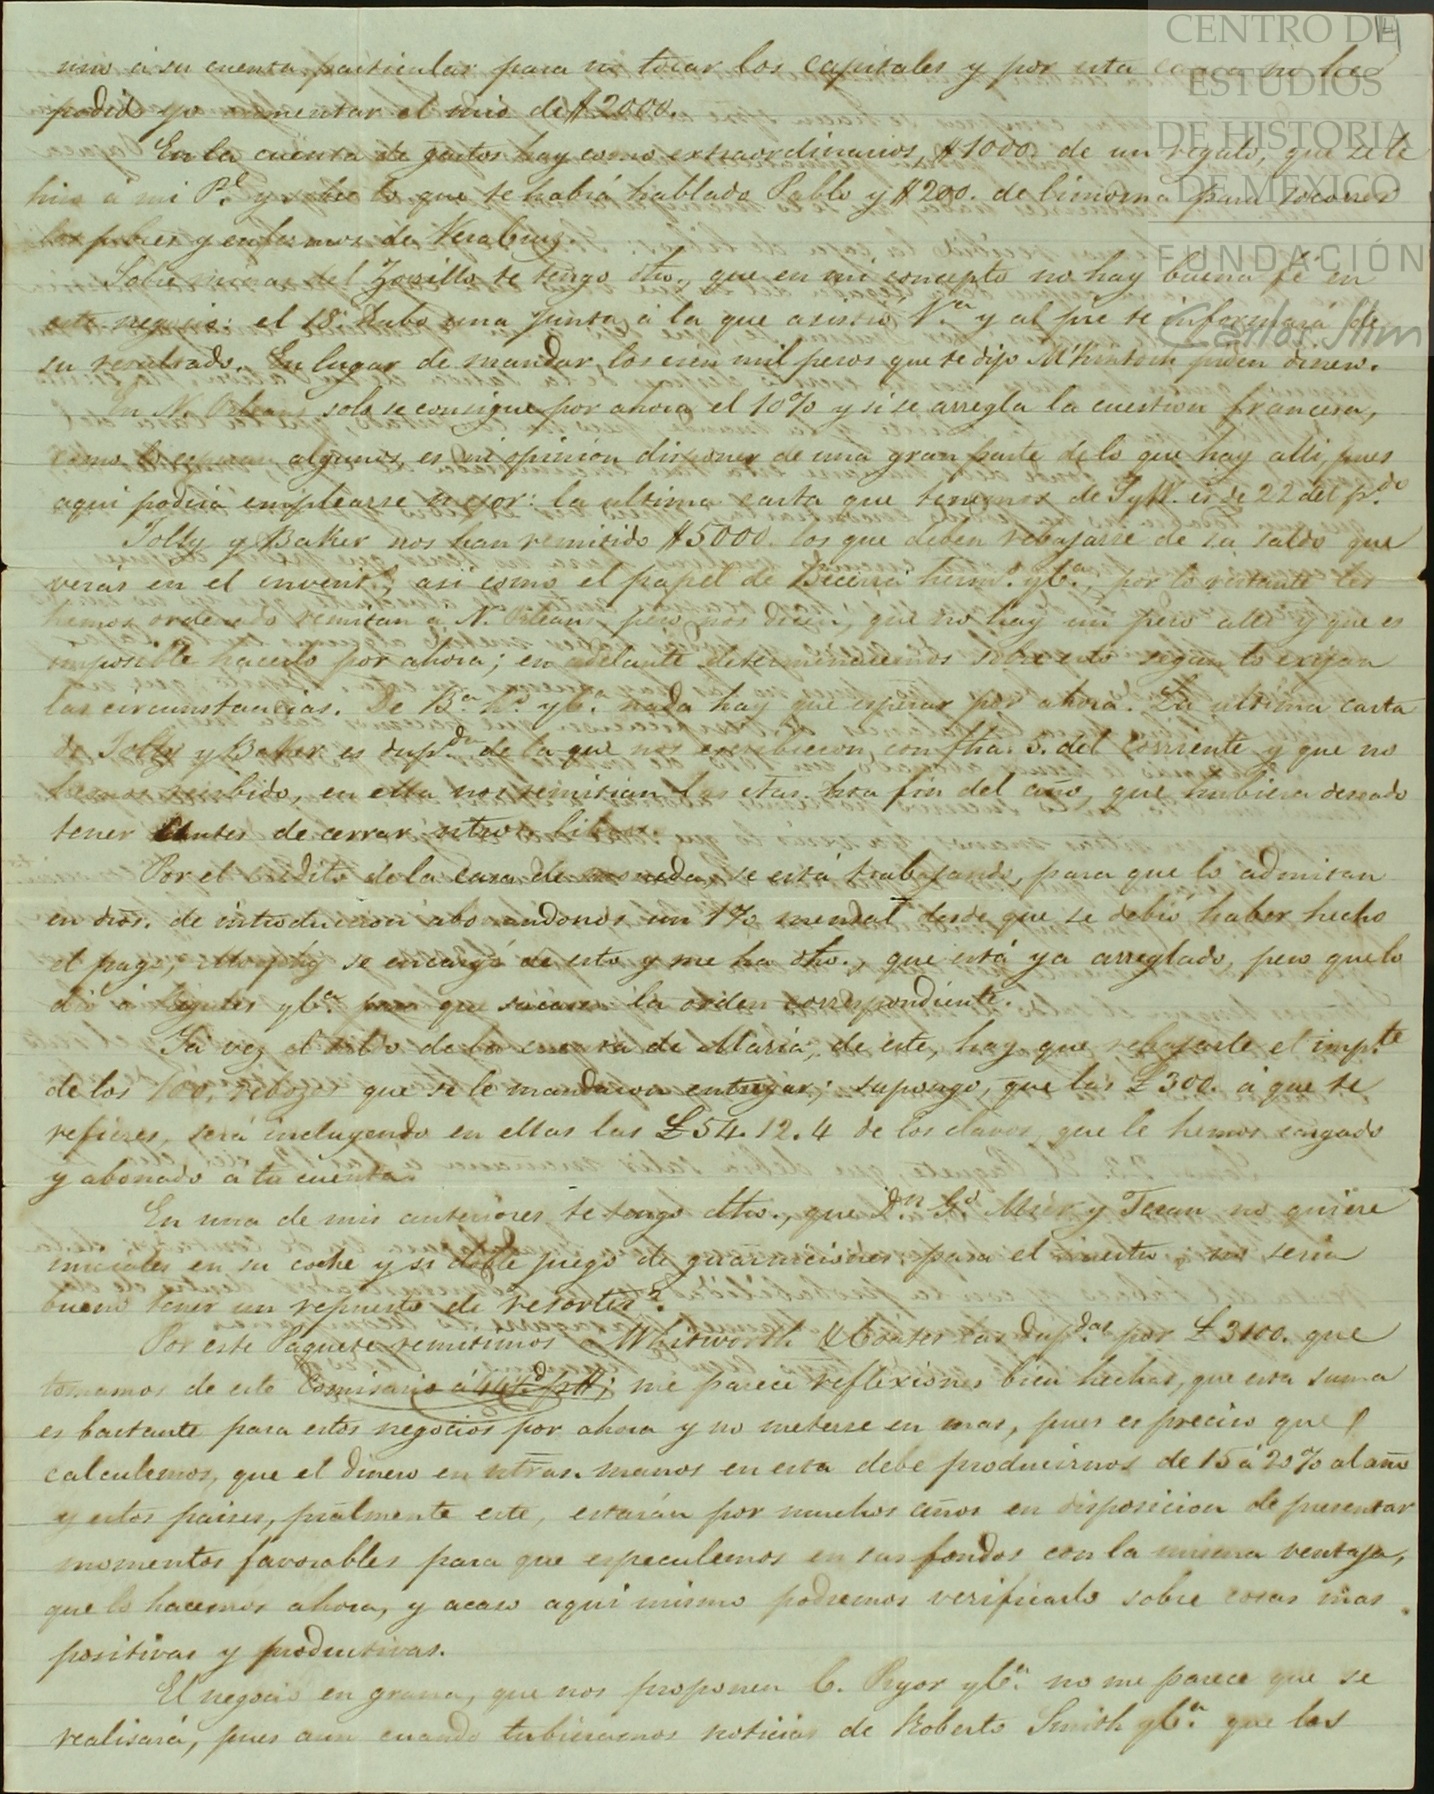 CENTRO DE
ESTUDIOS
DE HISTORIA
DE MÉXICO
FUNDACIÓN
Carlos Slim
14
mio á su cuenta particular para no tocar los capitales y por esta no he
podido yo aumentar el mio de $2000.
En la cuenta de gastos hay como extraordinarios, $1000. de un regalo, que se le
hizo á mi P.e y sobre lo que te habrá hablado Pablo y $200. de limosna para socorrer
los pobres y enfermos de Veracruz.
Sobre minas del Zorillo te tengo dho., que en mi concepto no hay buena fé en
este negocio: el 18. hubo una junta á la que asistió V.ra y al pie te informará de
su resultado. En lugar de mandar los cien mil pesos que te dijo piden dinero.
En N. Orleans solo se consigue por ahora el 10% y si se arregla la cuestion francesa,
como lo esperan algunos, es mi opinion disponer de una gran parte de lo que hay alli, pues
aqui podria emplearse mejor: la ultima carta que tenemos de es de 22 del p.do
Jolly y Baker nos han remitido $5000. los que deben rebajarse de su saldo que
verás en el invent.o, asi como el papel de Becerra herm.o y C.a, por lo restante les
hemos ordenado remitan a N. Orleans, pero nos dicen, que no hay un peso alli y que es
imposible hacerlo por ahora; en adelante determinaremos sobre esto segun lo exijan
las circunstancias. De B.a h.o y C.a nada hay que esperar por ahora. La ultima carta
de Jolly y Baker es dup.do de la que nos escribieron con fha. 3. del corriente y que no
hemos recibido, en ella nos remitian las ctas. hta fin del año, que hubiera deseado
tener antes de cerrar ntros. libros.
Por el credito de la casa de moneda, se está trabajando, para que lo admitan
en dros. de introduccion abonandonos un 1% mensal desde que se debió haber hecho
el pago; Murphy se encargó de esto y me ha dho., que está ya arreglado, pero que lo
dió á y C.a para que sacasen la orden correspondiente.
Tal vez el saldo de la cuenta de Maria, de este, hay que rebajarle el imp.te
de los 100. rebozos que se le mandaron entregar; supongo, que las £300. á que te
refieres, será incluyendo en ellas las £54.12.4 de los clavos que le hemos cargado
y abonado a tu cuenta.
En una de mis anteriores te tengo dho., que D.n G.o Mier y Teran no quiere
iniciales en su coche y si doble juego de guarniciones: para el nuestro no seria
bueno tener un repuesto de resortes?
Por este Paquete remitimos a Whitworth las dup.das por £3100. que
tomamos de este Comisario á me parece reflexiones bien hechas, que esta suma
es bastante para estos negocios por ahora y no meterse en mas, pues es preciso que
calculemos, que el dinero en ntras. manos en esta debe producirnos de 15 á 20% al año
y estos paises, pralmente este, estarán por muchos años en disposicion de presentar
momentos favorables para que especulemos en sus fondos con la misma ventaja,
que lo hacemos ahora, y acaso aqui mismo podremos verificarlo sobre cosas mas
positivas y productivas.
El negocio en grana, que nos proponen C. Pryor y C.a no me parece que se
realisará, pues aun cuando tubieramos noticias de Roberto Smith y C.a que los